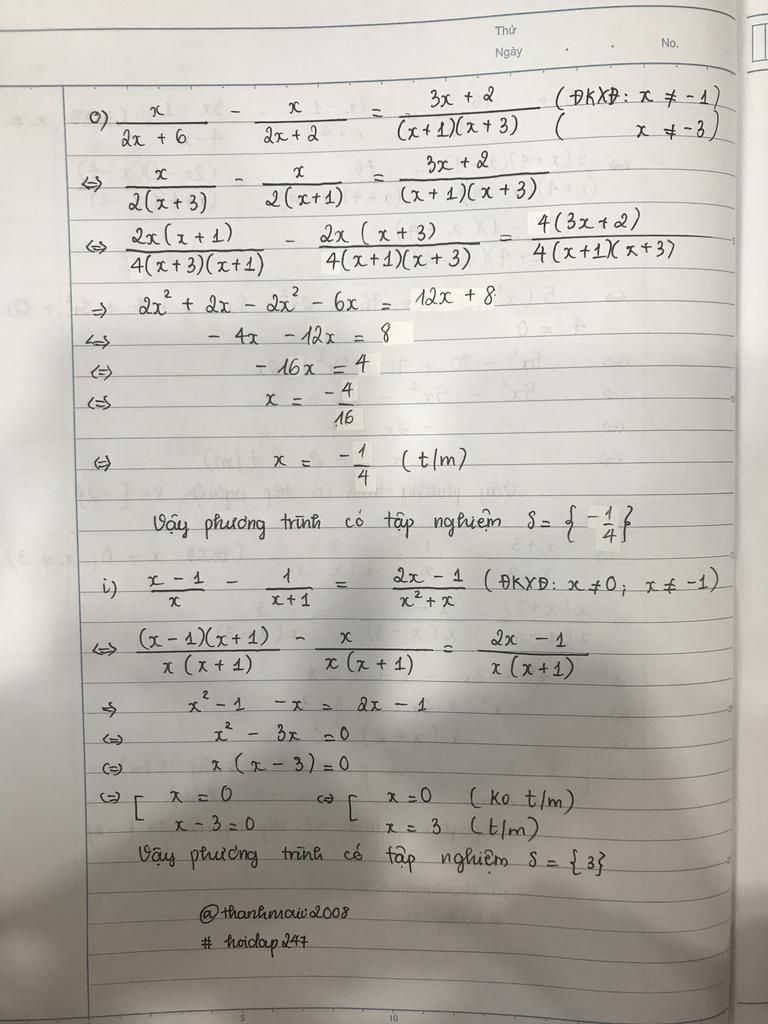 Thứ
Ngày . . No.
o) x/(2x + 6) - x/(2x + 2) = (3x + 2)/((x+1)(x+3)) (ĐKXĐ: x ≠ -1)
( x ≠ -3)
⇔ x/(2(x+3)) - x/(2(x+1)) = (3x+2)/((x+1)(x+3))
⇔ 2x(x+1)/(4(x+3)(x+1)) - 2x(x+3)/(4(x+1)(x+3)) = 4(3x+2)/(4(x+1)(x+3))
⇒ 2x² + 2x - 2x² - 6x = 12x + 8
⇔ - 4x - 12x = 8
⇔ - 16x = 4
⇔ x = -4/16
⇔ x = -1/4 (t/m)
Vậy phương trình có tập nghiệm S = {-1/4}
i) (x - 1)/x - 1/(x+1) = (2x - 1)/(x² + x) (ĐKXĐ: x ≠ 0; x ≠ -1)
⇔ (x-1)(x+1)/(x(x+1)) - x/(x(x+1)) = (2x - 1)/(x(x+1))
⇒ x² - 1 - x = 2x - 1
⇔ x² - 3x = 0
⇔ x(x - 3) = 0
⇔ [ x = 0 ⇔ [ x = 0 (ko t/m)
x - 3 = 0 x = 3 (t/m)
Vậy phương trình có tập nghiệm S = {3}
@thanhmaii2008
# hoidap247
5 10